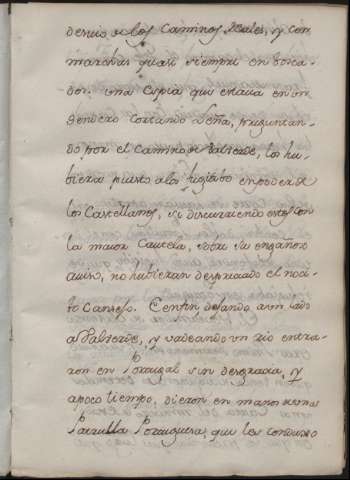 desvio de los Caminos Reales, y con
marchas quasi siempre en boca-
dos. Una Espia que estava en un
Sendero cortando Leña, preguntan-
do por el Camino de Valverde, los hu-
biera puesto a los fugitivos en poder de
los Castellanos, si discurriendo estos con
la maior Cautela, sobre su engañoso
aviso, no hubieran despreciado el noci-
vo Consejo. En fin dejando a un lado
a Valverde, y vadeando un rio entra-
ron en Portugal sin desgracia, y
a poco tiempo, dieron en manos de una
Patrulla Portuguesa, que los condujo